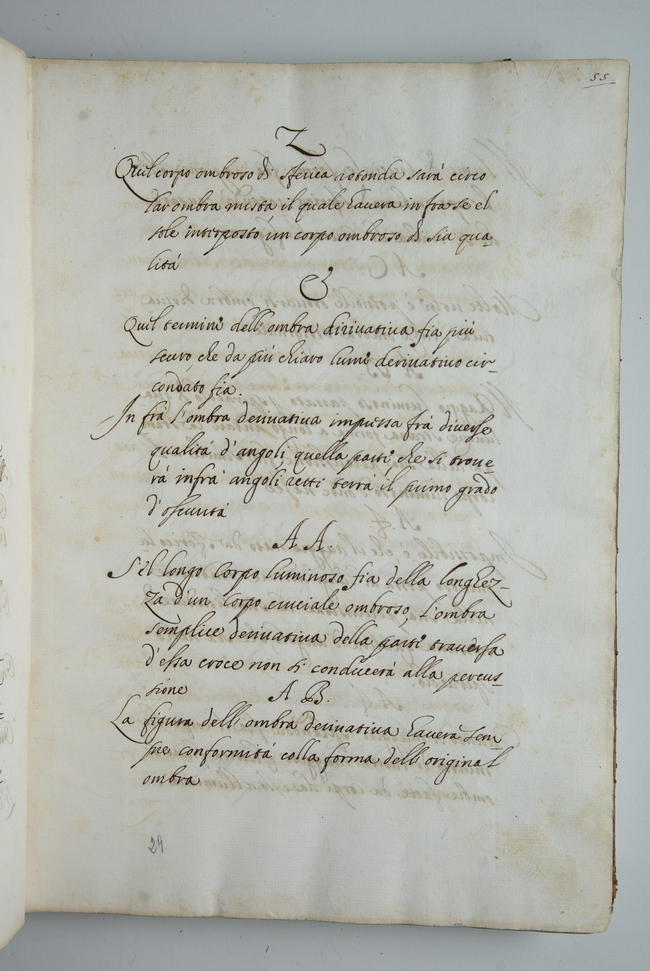 55
Z
Quel corpo ombroso di sferica rotonda sarà circo
lar ombra mista il quale havera infra se el
sole interposto un corpo ombroso di sia qua-
lità
&
Quel termine dell'ombra dirivativa fia più
scuro che da più chiaro lume derivativo cir-
condato fia.
In frà l'ombra derivativa impressa frà diverse
qualità d'angoli, quella parte che si trove-
rà infrà angoli retti terrà il primo grado
d'oscurità
A A.
S'il longo corpo luminoso fia della longhez-
za d'un corpo cruciale ombroso, l'ombra
semplice derivativa della parte traversa
d'essa croce non si conducerà alla percus-
sione
A B.
La figura dell'ombra derivativa havera sem-
pre conformità colla forma dell'original
ombra
29